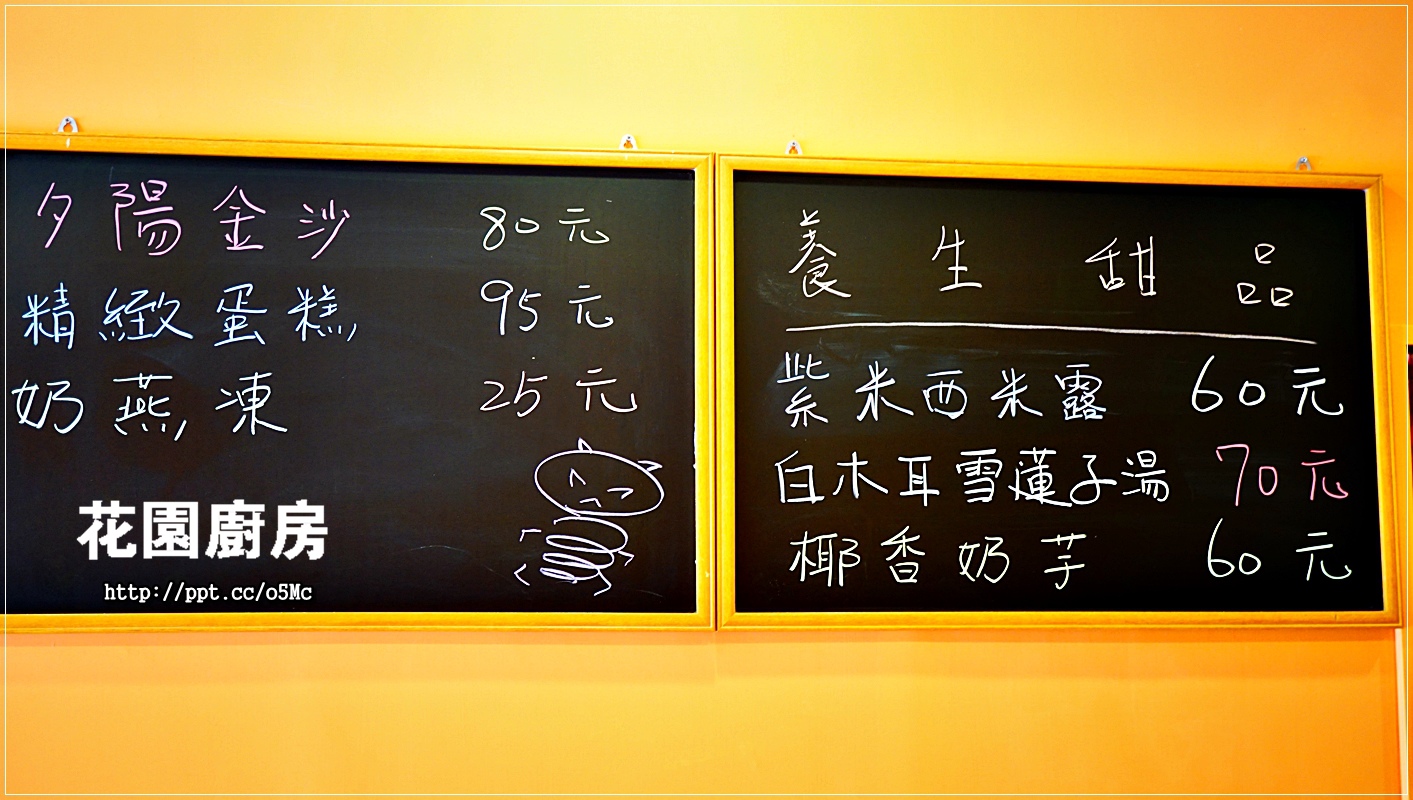 夕陽金沙 80元
精緻蛋糕 95元
奶燕凍 25元
花園廚房
http://ppt.cc/o5Mc
養生甜品
紫米西米露 60元
白木耳雪蓮子湯 70元
椰香奶芋 60元